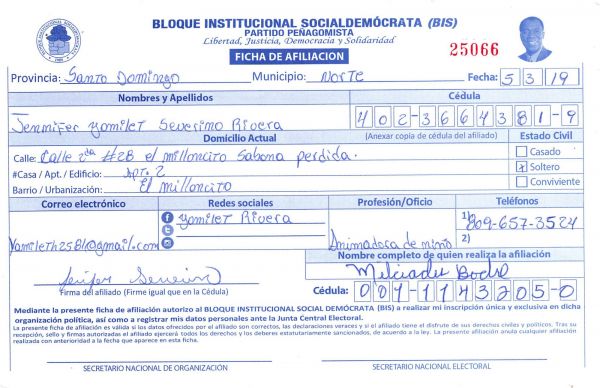 BLOQUE INSTITUCIONAL SOCIALDEMÓCRATA (BIS)
PARTIDO PEÑAGOMISTA
Libertad, Justicia, Democracia y Solidaridad
FICHA DE AFILIACION
25066
Provincia: Santo Domingo Municipio: Norte Fecha: 5 3 19
Nombres y Apellidos Cédula
Jennifer Yomilet Severino Rivera 402-3664381-9
Domicilio Actual (Anexar copia de cédula del afiliado) Estado Civil
Calle: Calle 2da #28 el milloncito Sabana perdida. Casado
#Casa / Apt. / Edificio: Apto. 2 x Soltero
Barrio / Urbanización: El milloncito Conviviente
Correo electrónico Redes sociales Profesión/Oficio Teléfonos
Yomilet Rivera 1) 809-657-3524
Yamileth2581@gmail.com Animadora de 2)
Nombre completo de quien realiza la afiliación
Firma del afiliado (Firme igual que en la Cédula) Cédula: 001-1143205-0
Mediante la presente ficha de afiliación autorizo al BLOQUE INSTITUCIONAL SOCIAL DEMÓCRATA (BIS) a realizar mi inscripción única y exclusiva en dicha
organización política, así como a registrar mis datos personales ante la Junta Central Electoral.
La presente ficha de afiliación es válida si los datos ofrecidos por el afiliado son correctos, las declaraciones veraces y si el afiliado tiene el disfrute de sus derechos civiles y políticos. Tras su
recepción, sello y firmas autorizadas el afiliado ejercerá todos los derechos y los deberes estatutariamente sancionados, de acuerdo a la ley. La presente afiliación anula cualquier afiliación
realizada con anterioridad a la fecha que aparece en esta ficha.
SECRETARIO NACIONAL DE ORGANIZACIÓN SECRETARIO NACIONAL ELECTORAL